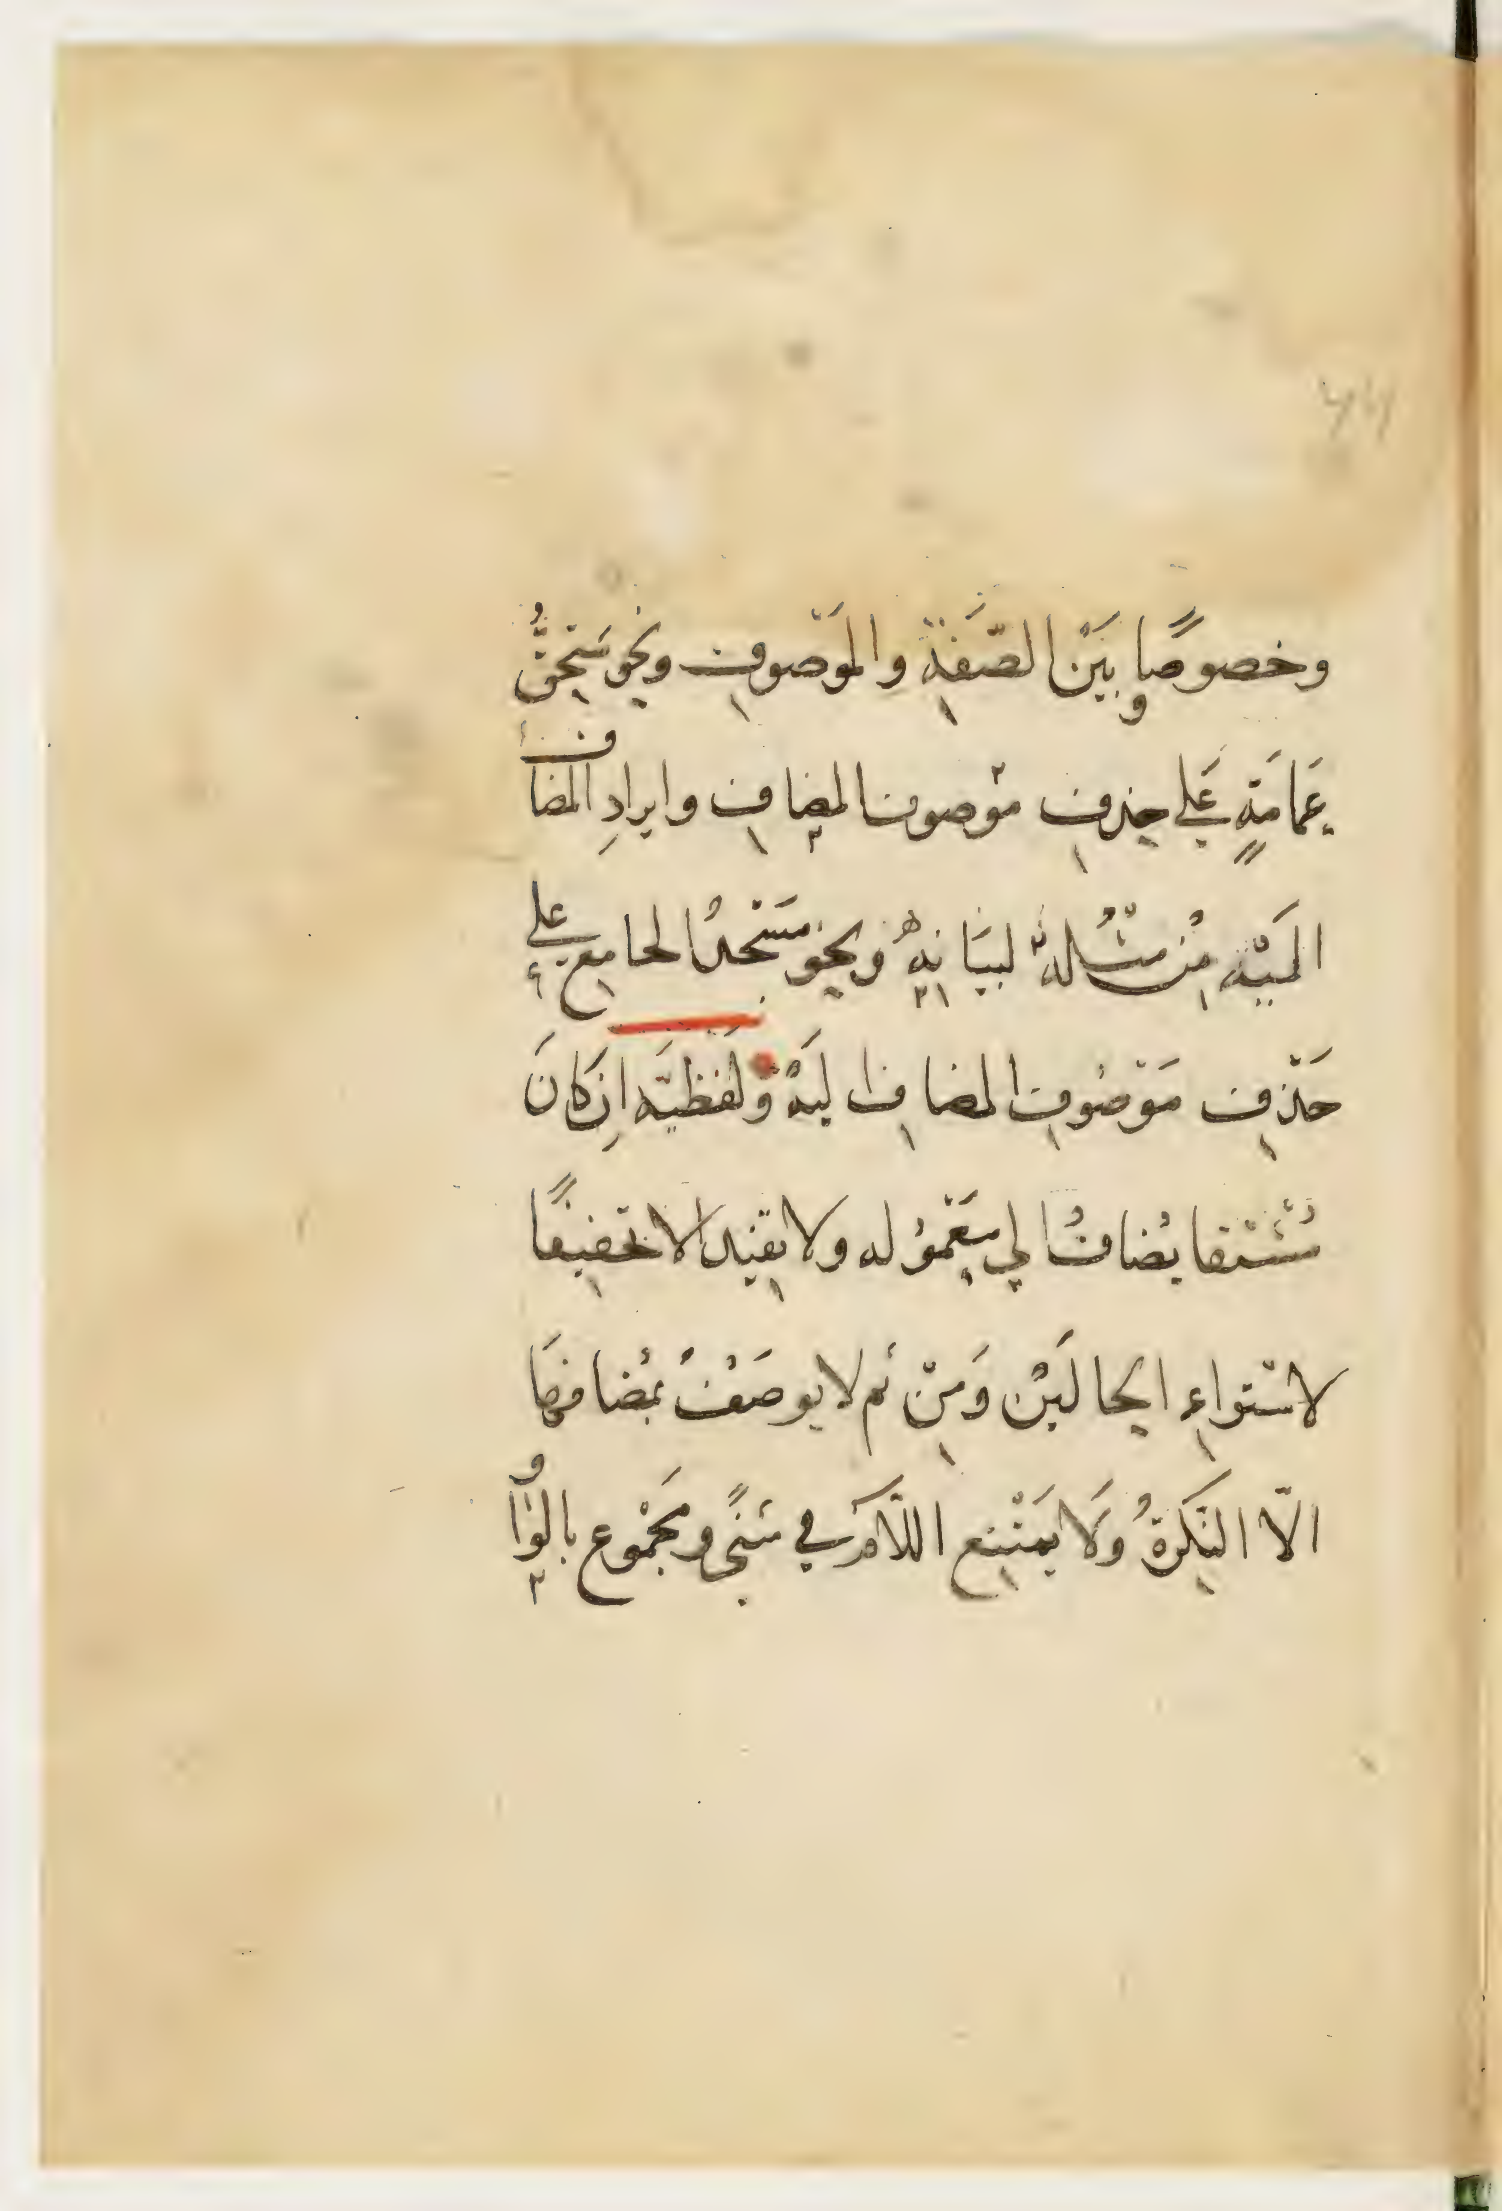 وخصوصًا وبَيْنَ الصّفَةِ والمَوْصوفِ ونحو سَحْقُ
عِمَامَةٍ عَلى حذفِ موْصوف المضافِ وايرادِ المضاف
المبيّنه مِنْ مثله لبيَانِه ونحو مَسْجدُ الجامعِ على
حَذْفِ مَوْصُوفِ المضافِ اليَه ولَفظيّه اِن كانَ
مُشْتقا يُضافُ الي مَعْمُوله ولا تفيد الا تخفيفًا
لاسْتواءِ الحالَيْن وَمِنْ ثم لا يوصَفُ بمُضافهَا
الّا النَكِرَةُ وَلَا يَمْتَنِع اللّامُ في مثنًى ومَجْمُوع بالوَاو